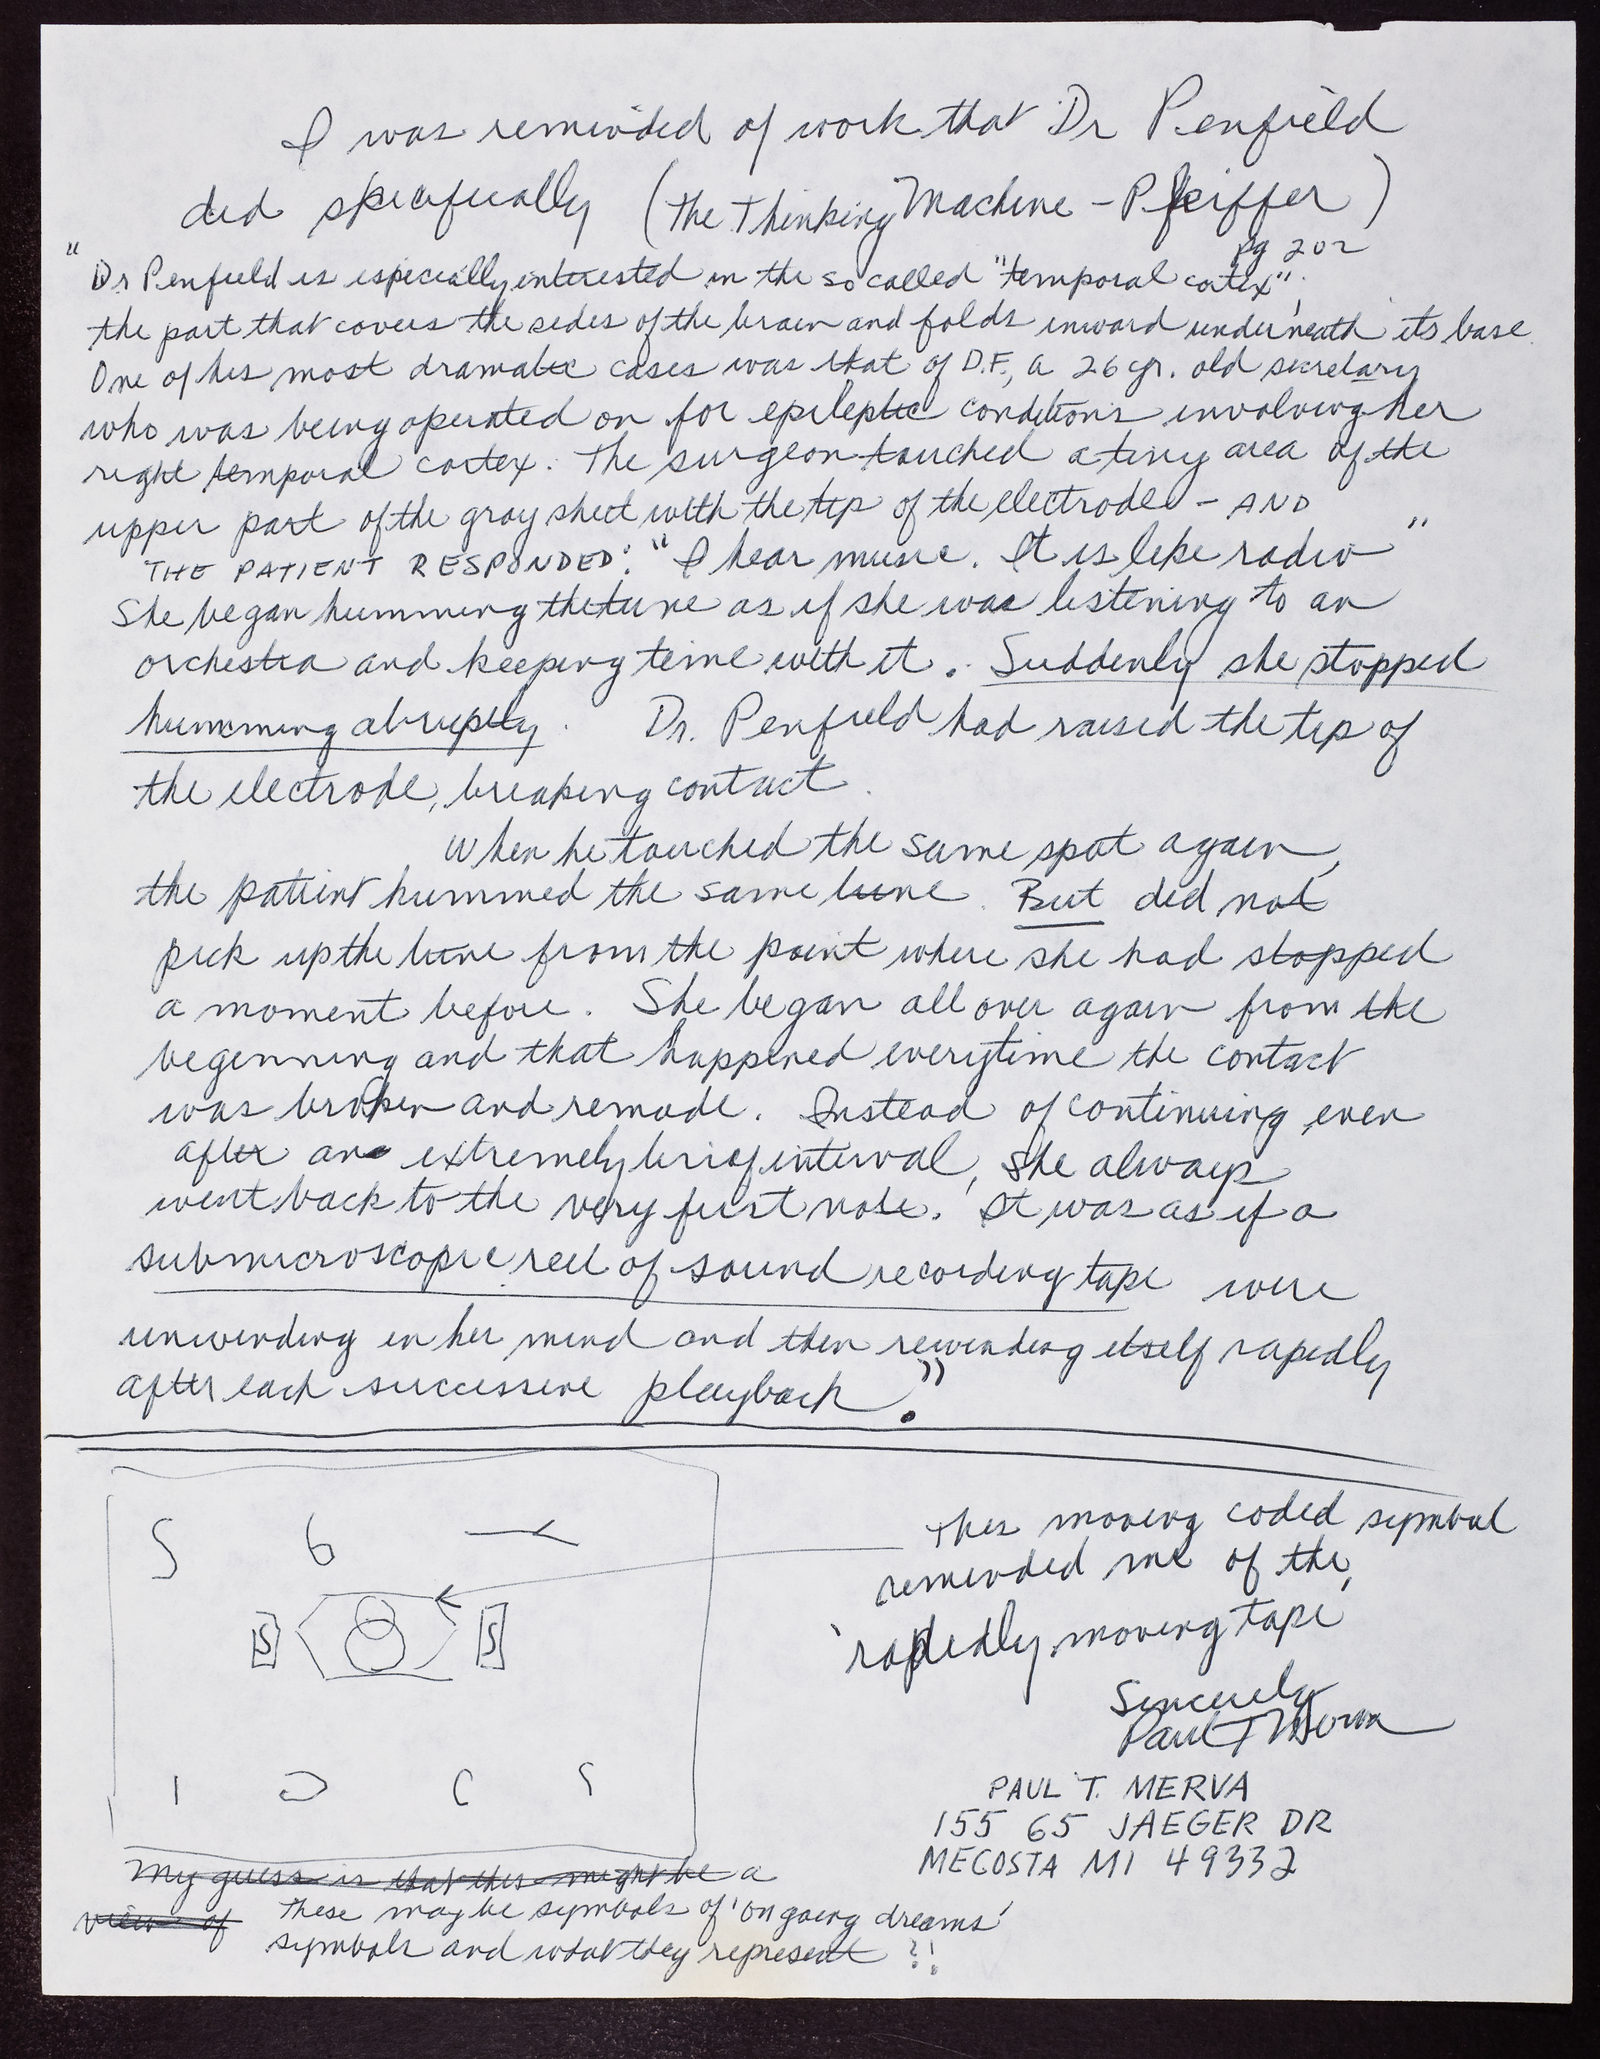 I was reminded of work that Dr Penfield
did specifically (The Thinking Machine - Pfeiffer)
pg 202
"Dr Penfield is especially interested in the so called "temporal cortex",
the part that covers the sides of the brain and folds inward underneath its base.
One of his most dramatic cases was that of D.F., a 26 yr. old secretary
who was being operated on for epileptic conditions involving her
right temporal cortex. The surgeon touched a tiny area of the
upper part of the gray sheet with the tip of the electrode - AND
THE PATIENT RESPONDED: "I hear music. It is like radio"
She began humming the tune as if she was listening to an
orchestra and keeping time with it. Suddenly she stopped
humming abruptly. Dr. Penfield had raised the tip of
the electrode, breaking contact.
When he touched the same spot again,
the patient hummed the same tune. But did not
pick up the tune from the point where she had stopped
a moment before. She began all over again from the
beginning and that happened everytime the contact
was broken and remade. Instead of continuing even
after an extremely brief interval, she always
went back to the very first note. It was as if a
submicroscopic reel of sound recording tape were
unwinding in her mind and then rewinding itself rapidly
after each successive playback."
S 6
S S
This moving coded symbol
reminded me of the
'rapidly moving tape'
Sincerely
Paul T Merva
PAUL T. MERVA
155 65 JAEGER DR
MECOSTA MI 49332
My guess is that this might be a
view of These may be symbols of 'on going dreams'
symbols and what they represent ?!